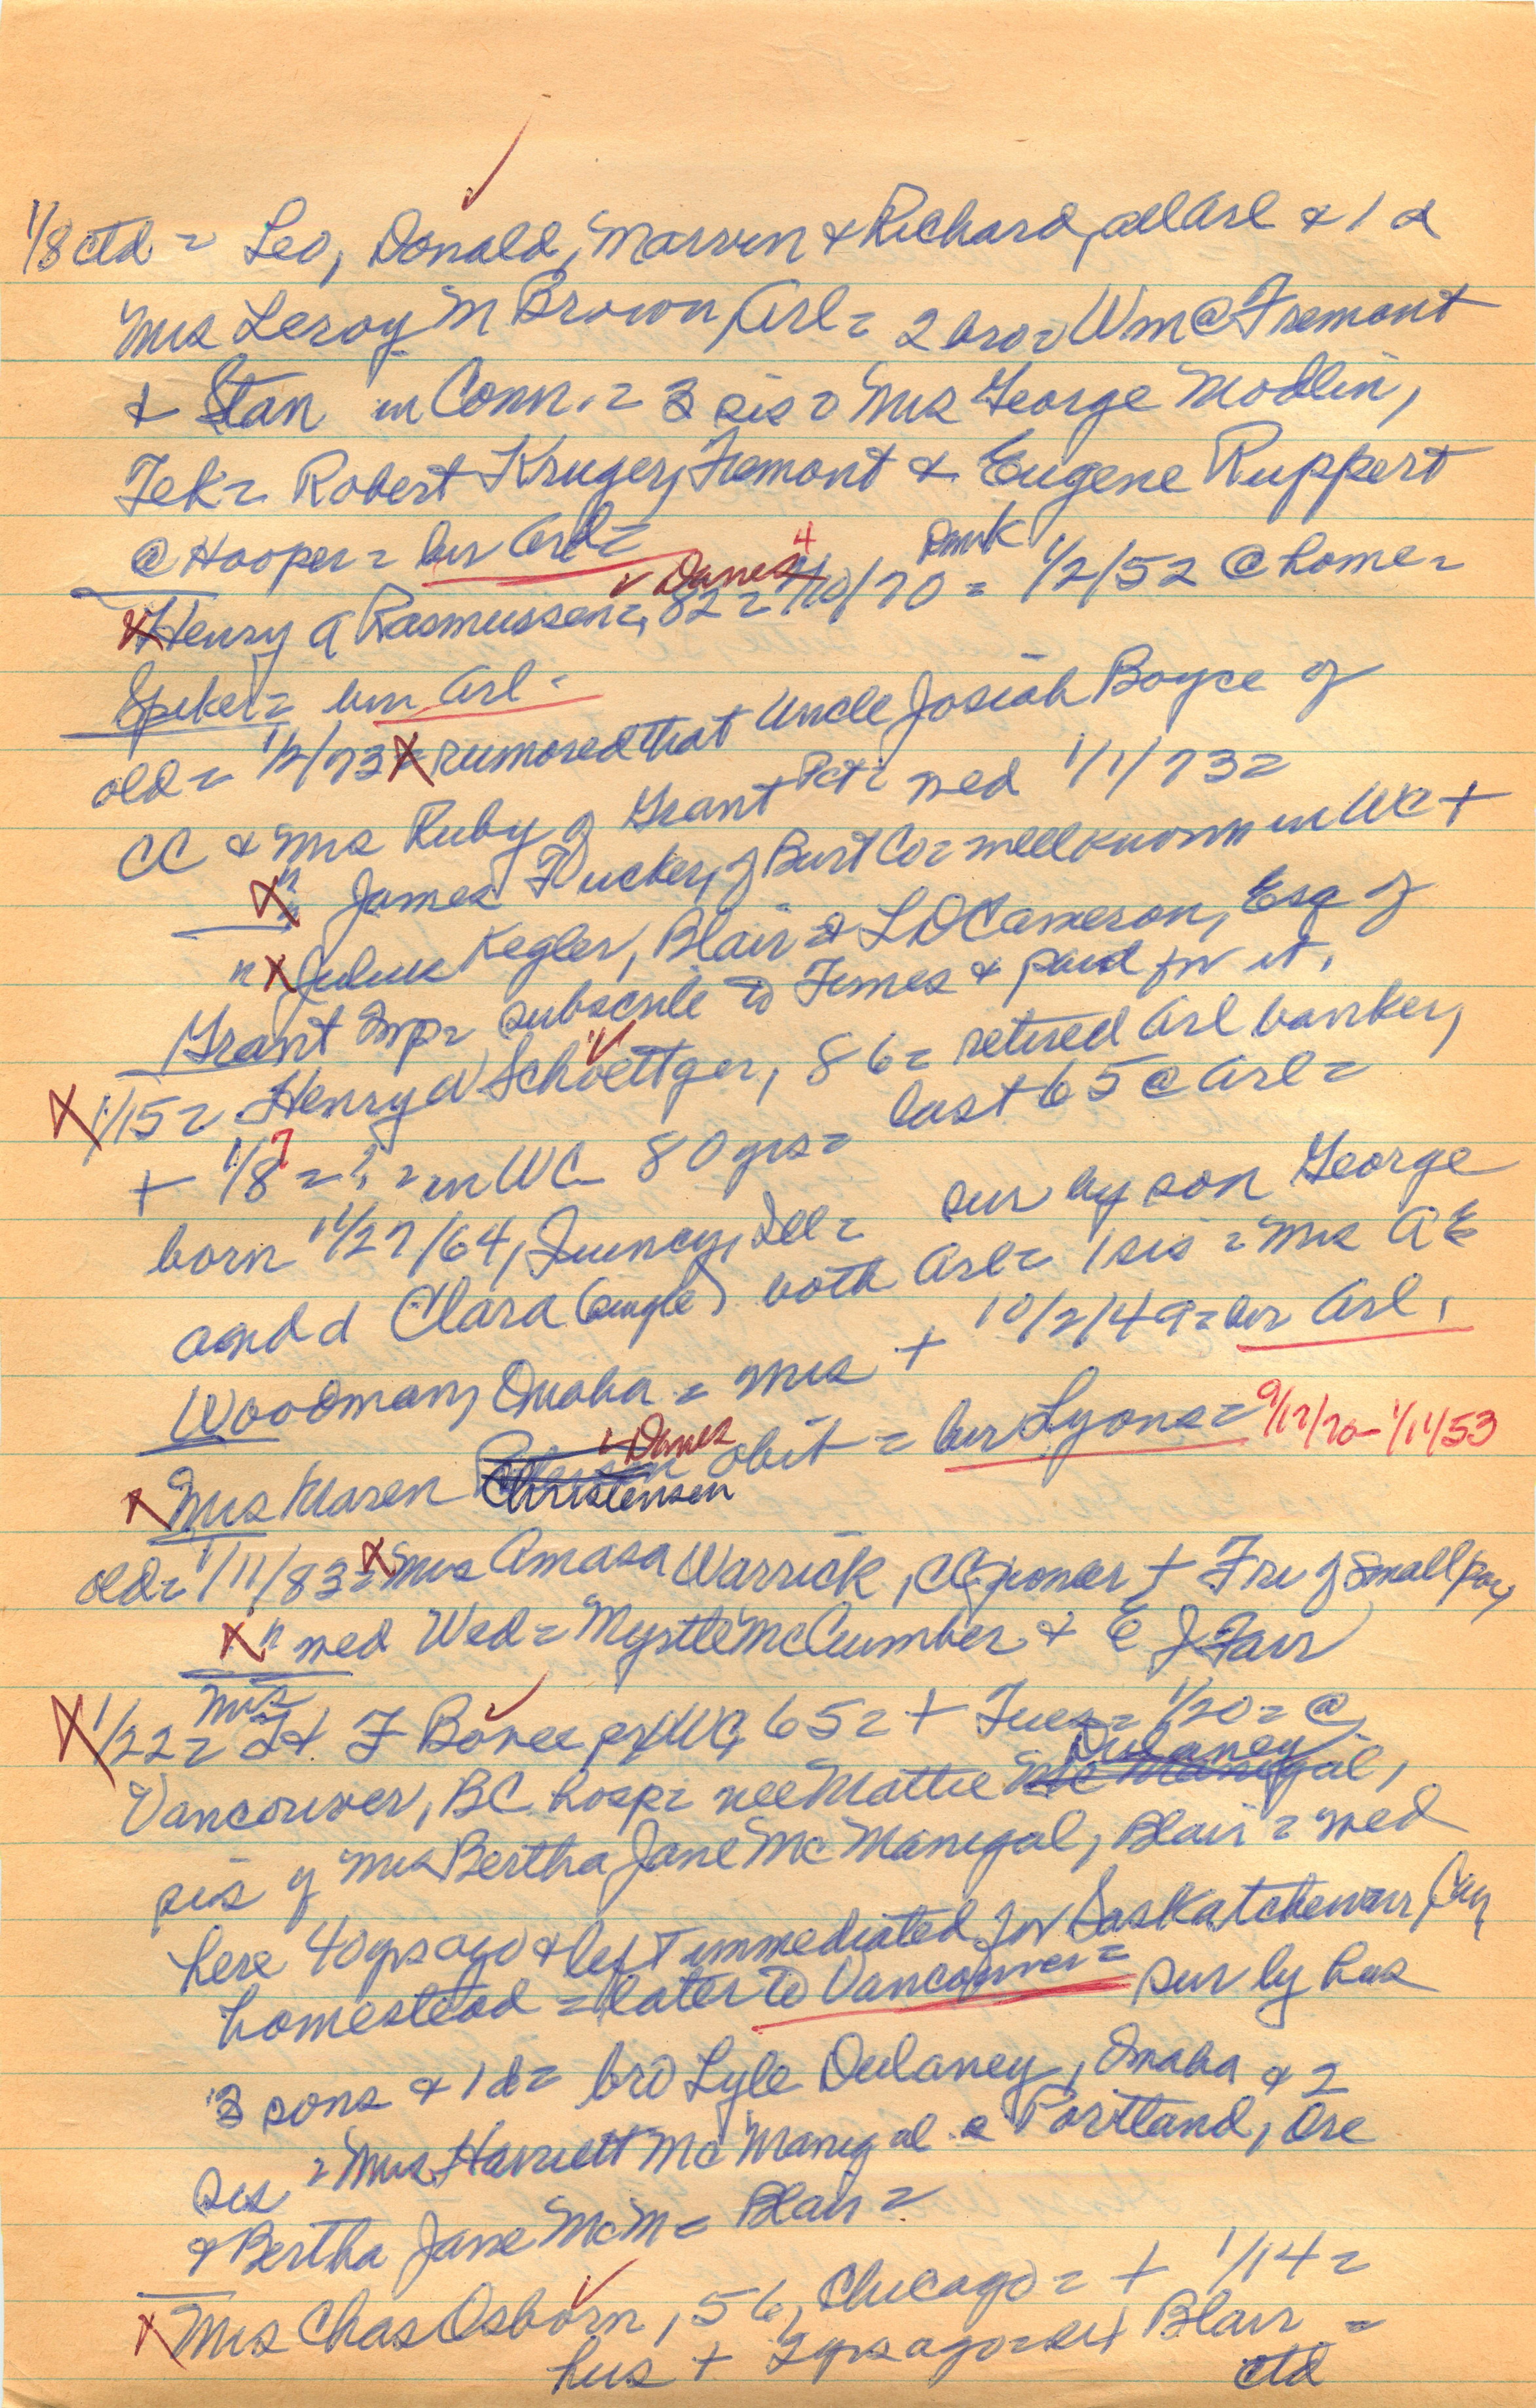 1/8 ctd = Leo, Donald, Marvin & Richard, all Arl & 1 d
Mrs Leroy M Brown, Arl = 2 bro = Wm @ Fremont
& Stan in Conn. = 3 sis = Mrs George Modlin,
Tek = Robert Kruger, Fremont & Eugene Ruppert
@ Hooper = bur Arl =
✓ Danes 4 Dmk
X Henry A Rasmussen, 82 = /10/70 = 1/2/52 @ home =
Spiker = bur Arl =
old = 1/2/73 X rumored that Uncle Josiah Boyce of
CC & Mrs Ruby of Grant Pct = med 1/1/73 =
X " James Tucker, of Burt Co = well known in WC +
" X Julius Kegler, Blair & L D Cameron, Esq of
Grant Imp = subscribe to Times & paid for it.
X 1/15 = Henry W Schoettger, 86 = retired Arl banker,
+ 1/8 ? = ? = in WC 80 yrs = last 65 @ Arl =
born 11/27/64, Quincy, Ill = sur by son George
and d Clara (single) both Arl = 1 sis = Mrs A E
Woodman, Omaha = Mrs + 10/2/49 = bur Arl.
✓ Danes
X Mrs Maren Christensen obit = bur Lyons = 9/17/70 - 1/11/53
old = 1/11/83 = X Mrs Amasa Warrick, CC pioneer + Fri of small pox,
X " med Wed = Myrtle McCumber & E J Farr
X 1/22 = Mrs F Bovee of WC, 65 = + Tues = 1/20 = @
Vancouver, BC hosp = nee Mattie Dulaney,
sis of Mrs Bertha Jane McManigal, Blair = med
here 40 yrs ago & left immediated for Saskatchewan, Can
homestead = later to Vancouver = sur by hus
3 sons & 1 d = bro Lyle Dulaney, Omaha & 2
sis = Mrs Harriett McManigal @ Portland, Ore
& Bertha Jane McM = Blair =
X Mrs Chas Osborn, 56, Chicago = + 1/14 =
hus + 2 yrs ago = Blair =
ctd